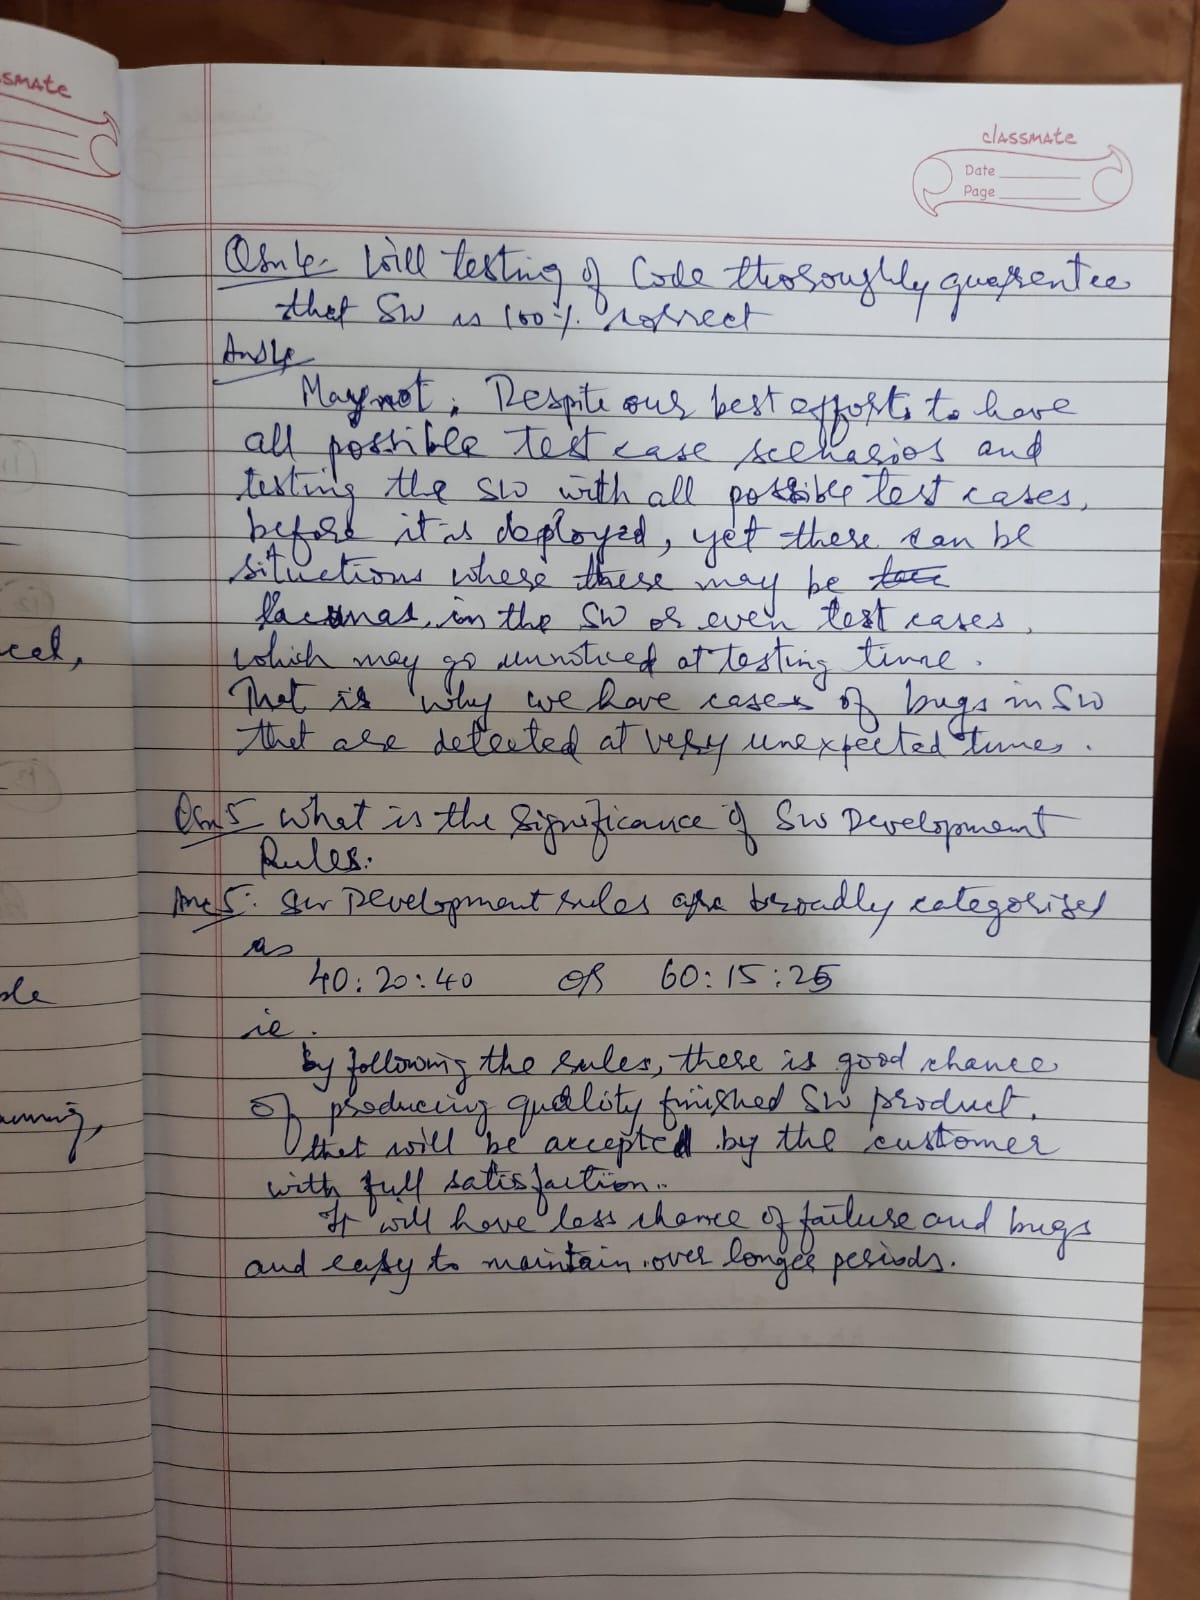 ssmate
classmate
Date
Page
Qsn 4. Will testing of Code thoroughly guarentee
that SW is 100% correct
Ans 4
May not. Despite our best efforts to have
all possible test case scenarios and
testing the SW with all possible test cases,
before it is deployed, yet there can be
situctions where there may be
lacunas, in the SW or even test cases,
which may go unnoticed at testing time.
That is why we have cases of bugs in SW
that are detected at very unexpected times.
Qsn 5 What is the Significance of SW Development
Rules.
Ans 5: SW Development rules are broadly categorised
as
40:20:40 or 60:15:25
ie.
by following the rules, there is good chance
of producing quality finished SW product,
that will be accepted by the customer
with full satisfaction.
It will have less chance of failure and bugs
and easy to maintain over longer periods.